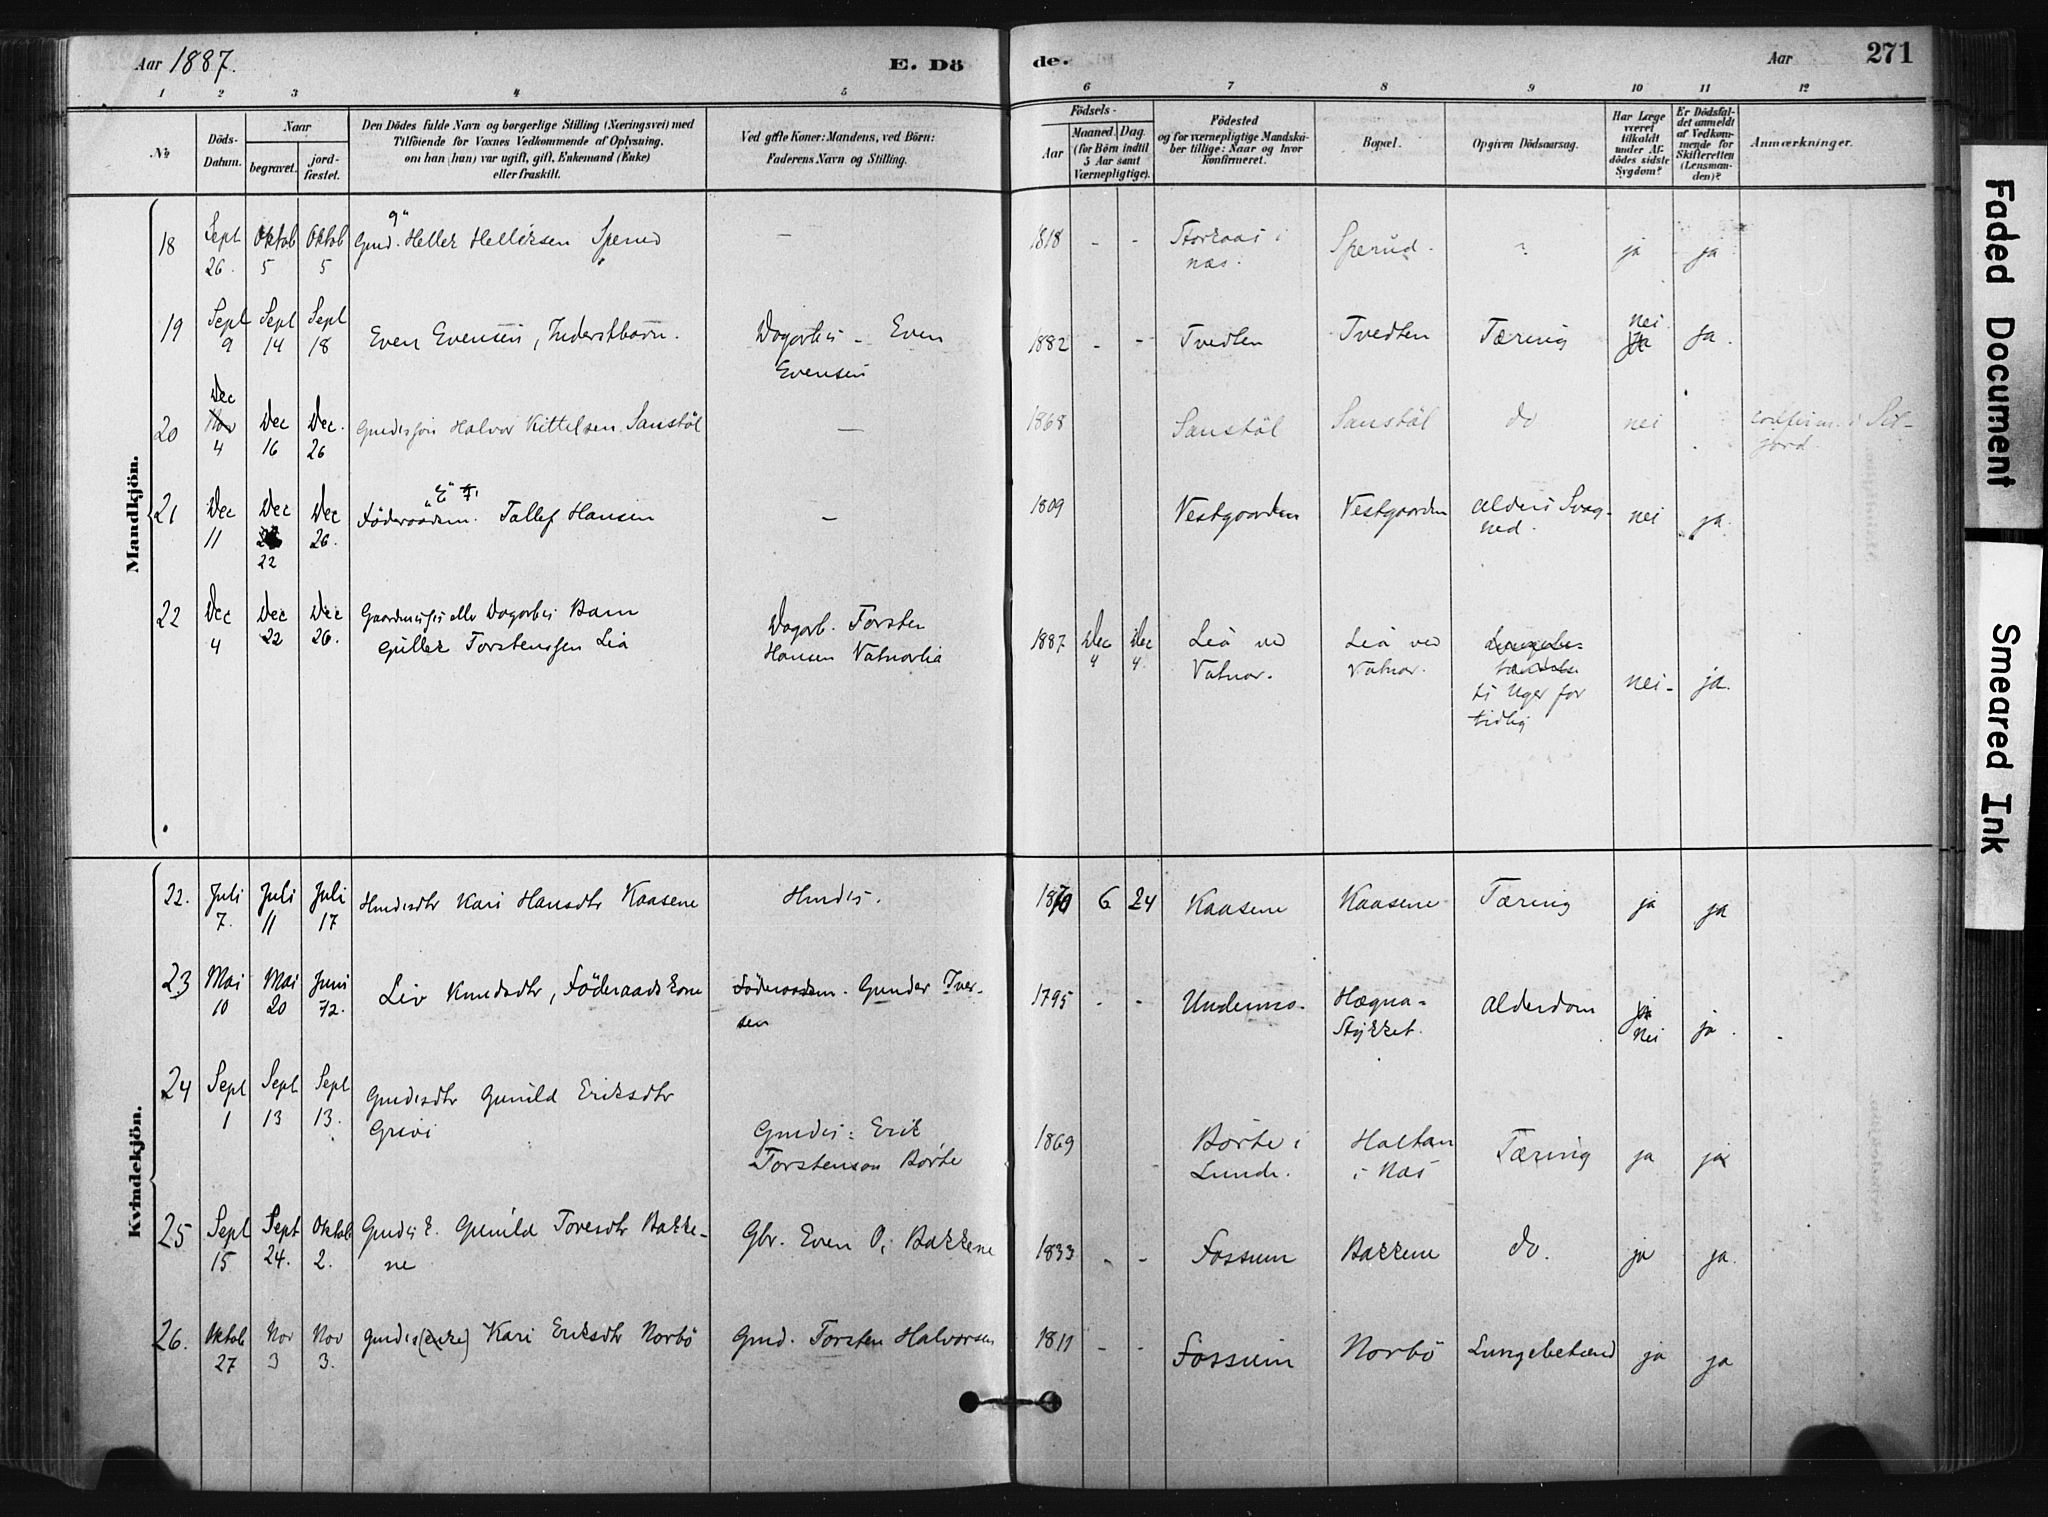 Aar 1887.
E. Dö
de.
Aar
271
1 2 3 4 5 6 7 8 9 10 11 12
No
Döds-
Datum.
Naar
begravet.
jord-
fæstet.
Den Dödes fulde Navn og borgerlige Stilling (Næringsvei) med
Tilföiende for Voxnes Vedkommende af Oplysning,
om han (hun) var ugift, gift, Enkemand (Enke)
eller fraskilt.
Ved gifte Koner: Mandens, ved Börn:
Faderens Navn og Stilling.
Födsels-
Aar
Maaned. Dag.
(for Börn indtil
5 Aar samt
Værnepligtige).
Födested
og for værnepligtige Mandska-
ber tillige: Naar og hvor
Konfirmeret.
Bopæl.
Opgiven Dödsaarsag.
Har Læge
været
tilkaldt
under Af-
dödes sidste
Sygdom?
Er Dödsfal-
det anmeldt
af Vedkom-
mende for
Skifteretten
(Lensman-
den)?
Anmærkninger.
Mandkjön.
18 Sept 26. Oktob 5 Oktob 5 Gmd. Hellek Helleksen Sperud — 1818 - - Storkaas i næs. Sperud. ? ja ja
19 Sept 9 Sept 14 Sept 18 Even Evensen, Inderstbarn. Dagarb. - Even
Evensen 1882 - - Tvedten Tvedten Tæring nei ja ja.
20 Dec Nov 4 Dec 16 Dec. 26 Gmdssön Halvor Kittelsen Sanstöl — 1868 Sanstöl Sanstöl do nei confirm. i Sil-
jord.
21 Dec 11 Dec 22 Dec 26. Föderaadsm. Tallef Hansen — 1809 Vestgaarden Vestgaarden Alders Svag-
hed. nei ja.
22 Dec 4 Dec 22 Dec 26. Dagarb. Barn
Guller Torstenssen Lia Dagarb. Torsten
Hansen Vatnarlia 1887 Dec 4 Dec 4. Lia ved
Vatnar. Lia ved
Vatnar. ti Uger for
tidlig nei - ja.
Kvindekjön.
22. Juli 7. Juli 11 Juli 17 Hmdsdtr Kari Hansdtr Kaasene Hmds. 1870 6 24 Kaasene Kaasene Tæring ja ja
23 Mai 10 Mai 20 Juni 12. Liv Knudsdtr, Föderaadskone Föderaadsm. Gunder Iver-
sen 1795 - - Hægna-
Stykket. Alderdom ja nei ja.
24 Sept 1 Sept 13 Sept 13. Gmdsdtr Gunild Eriksdtr
Grivi Gmds: Erik
Torstenson Börte 1869 Börte i
Lunde. Haltan
i Næs Tæring ja ja
25 Sept 15 Sept 24. Oktob 2. Gmds k. Gunild Toresdtr Bakke-
ne Gbr. Even O. Bakkene 1833 - - Fossum Bakkene do. ja ja.
26. Oktob 27 Nov 3 Nov 3. Gmds (enke) Kari Eriksdtr Norbö Gmd. Torsten Halvorsen 1811 - - Fossum Norbö Lungebetænd ja ja
Faded Document
Smeared Ink